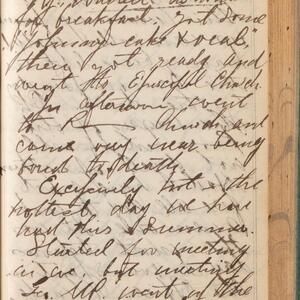 for breakfast. Got some
"Johnnie cake & veal,"
then got ready and
went to Episcopal Church
In afternoon went
to R church and
came very near being
bored to death.
Excessively hot – the
hottest day we have
had this Summer.
Started for meeting
in eve but meeting
went on the